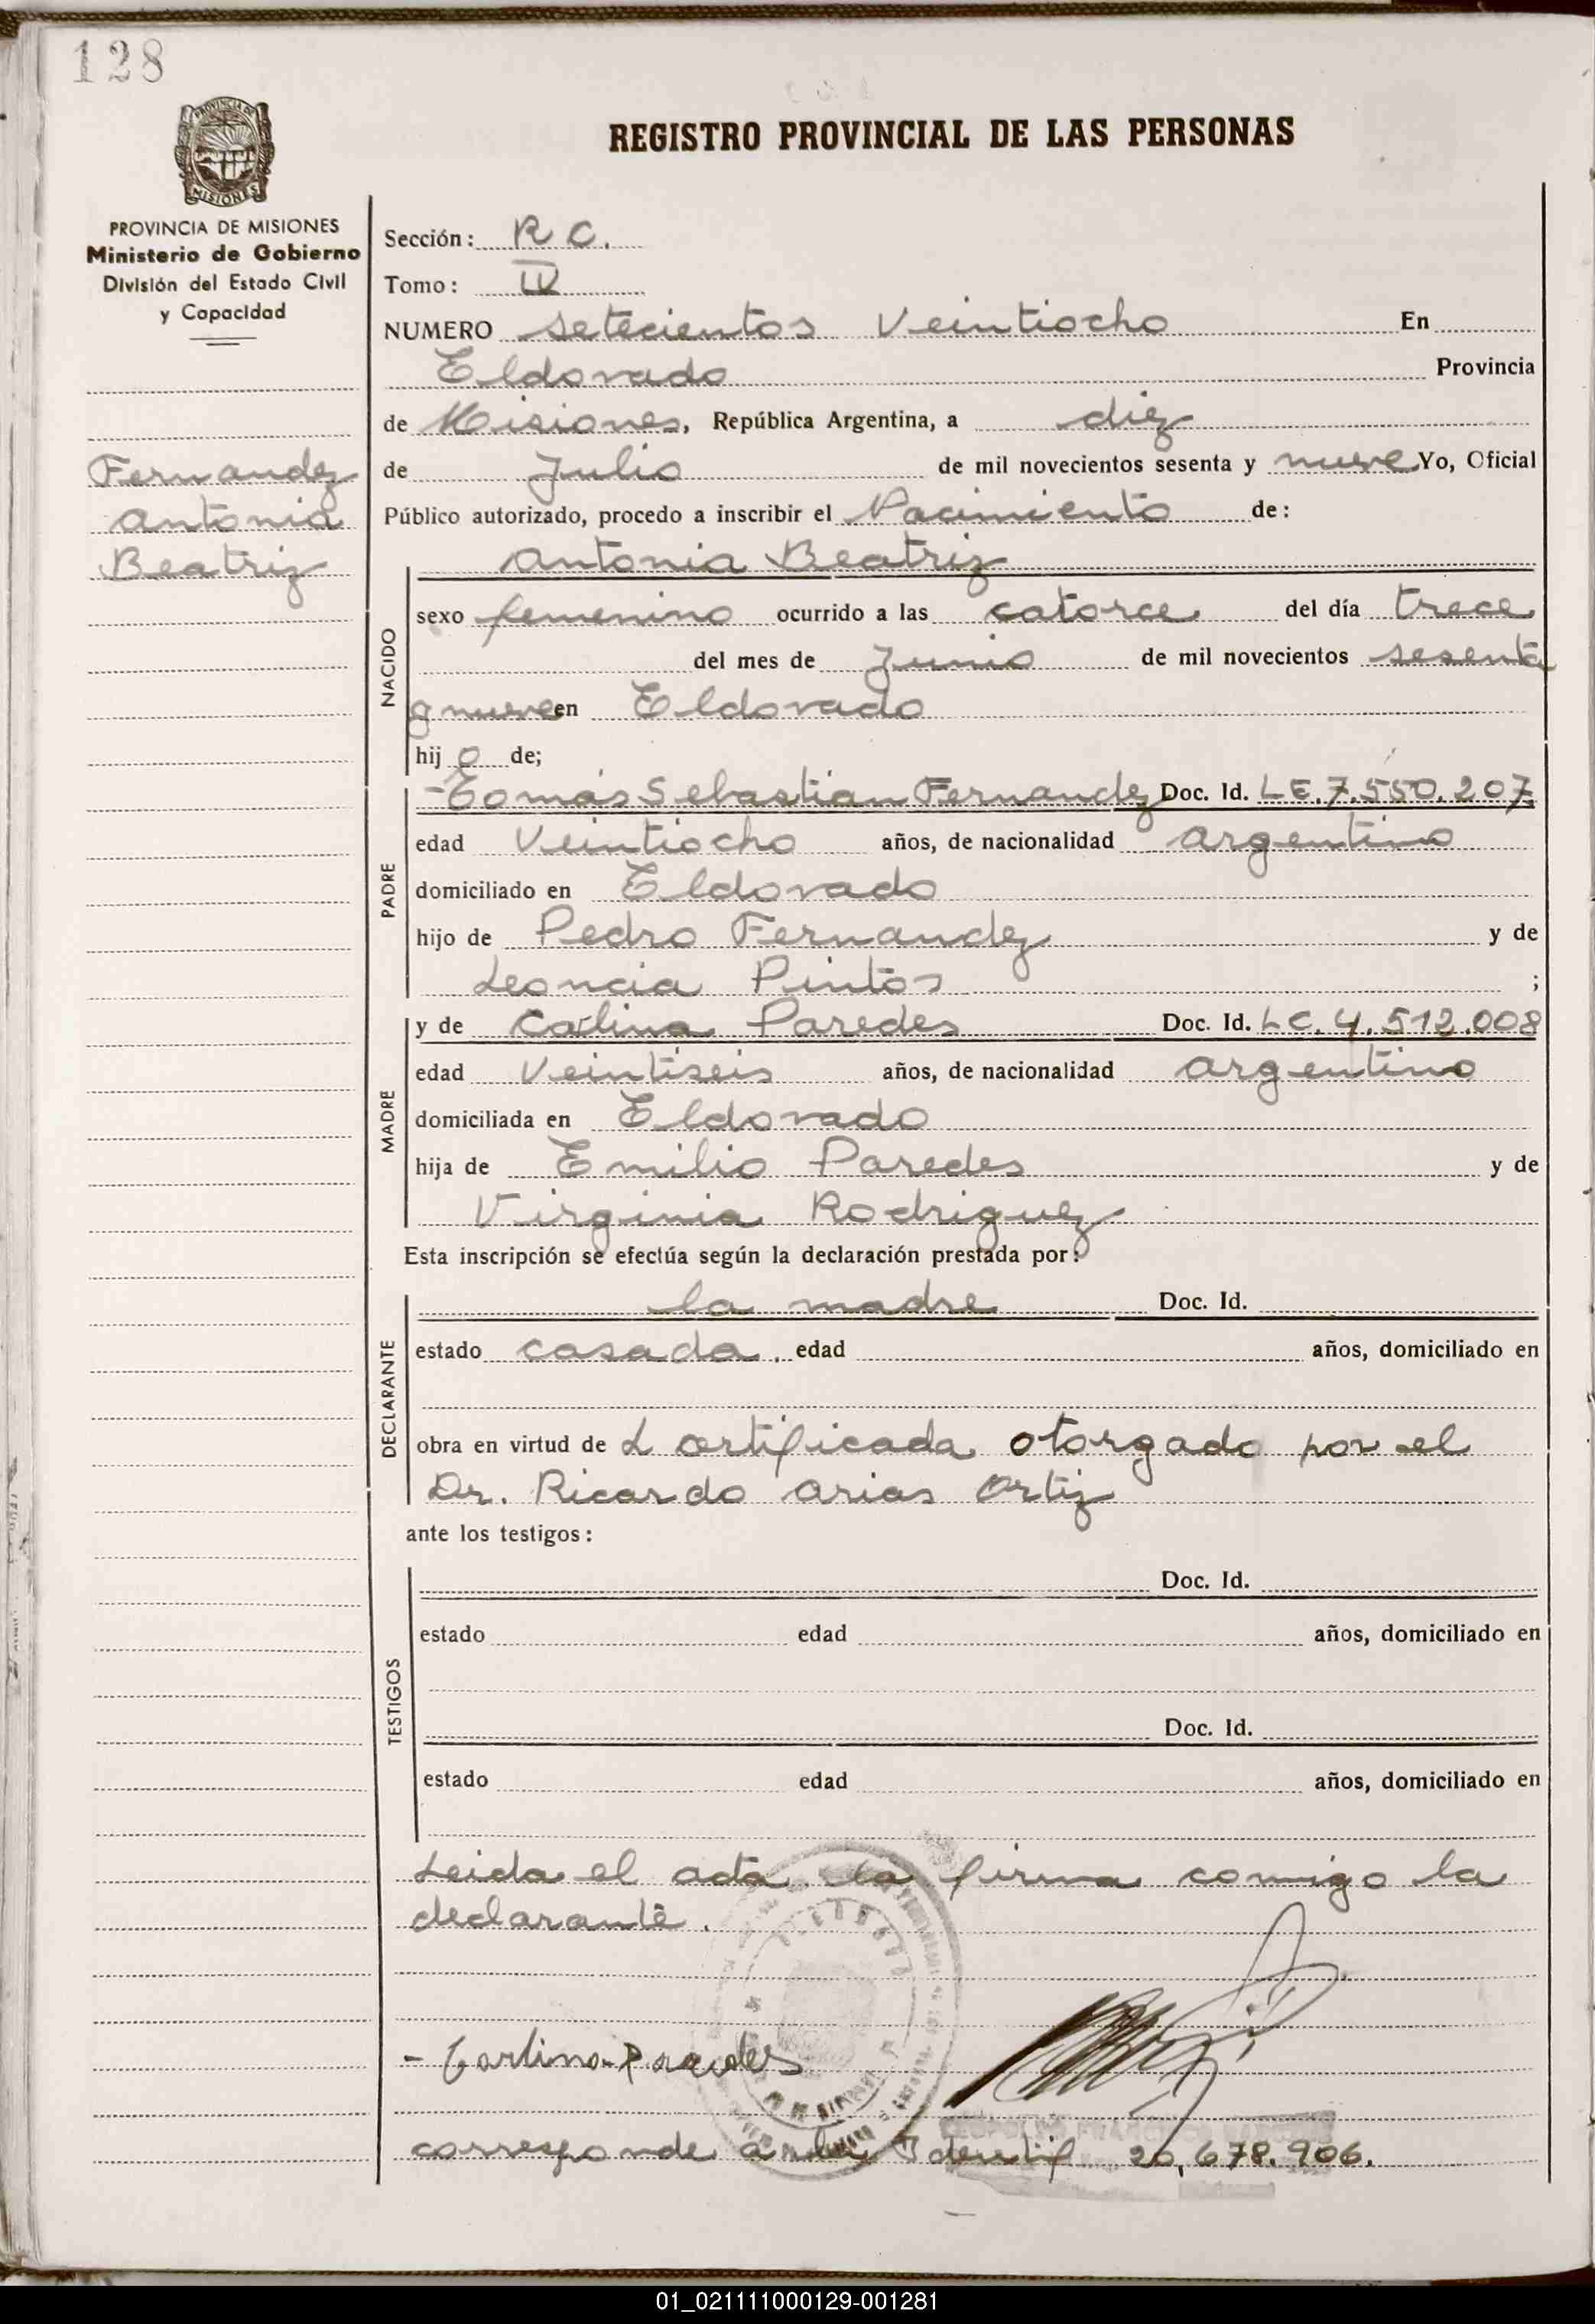 128
PROVINCIA DE MISIONES
PROVINCIA DE MISIONES
Ministerio de Gobierno
División del Estado Civil
y Capacidad
Fernandez
Antonia
Beatriz
REGISTRO PROVINCIAL DE LAS PERSONAS
Sección: R C.
Tomo: IV
NUMERO setecientos Veintiocho En
Eldorado Provincia
de Misiones, República Argentina, a diez
de Julio de mil novecientos sesenta y nueve Yo, Oficial
Público autorizado, procedo a inscribir el Nacimiento de:
Antonia Beatriz
NACIDO
sexo femenino ocurrido a las catorce del día trece
del mes de Junio de mil novecientos sesenta
y nueve en Eldorado
hij o de;
PADRE
-Tomás Sebastian Fernandez Doc. Id. LE. 7.550.207
edad Veintiocho años, de nacionalidad argentino
domiciliado en Eldorado
hijo de Pedro Fernandez y de
Leoncia Pintos ;
MADRE
y de Carlina Paredes Doc. Id. LC. 4.512.008
edad Veintiseis años, de nacionalidad argentino
domiciliada en Eldorado
hija de Emilio Paredes y de
Virginia Rodriguez
Esta inscripción se efectúa según la declaración prestada por:
DECLARANTE
la madre Doc. Id.
estado casada. edad años, domiciliado en
obra en virtud de L certificada otorgado por el
Dr. Ricardo Arias Ortiz
ante los testigos:
TESTIGOS
Doc. Id.
estado edad años, domiciliado en
Doc. Id.
estado edad años, domiciliado en
Leida el acta la firma comigo la
declarante.
- Carlina Paredes
corresponde Identif 20.678.906.
01_021111000129-001281